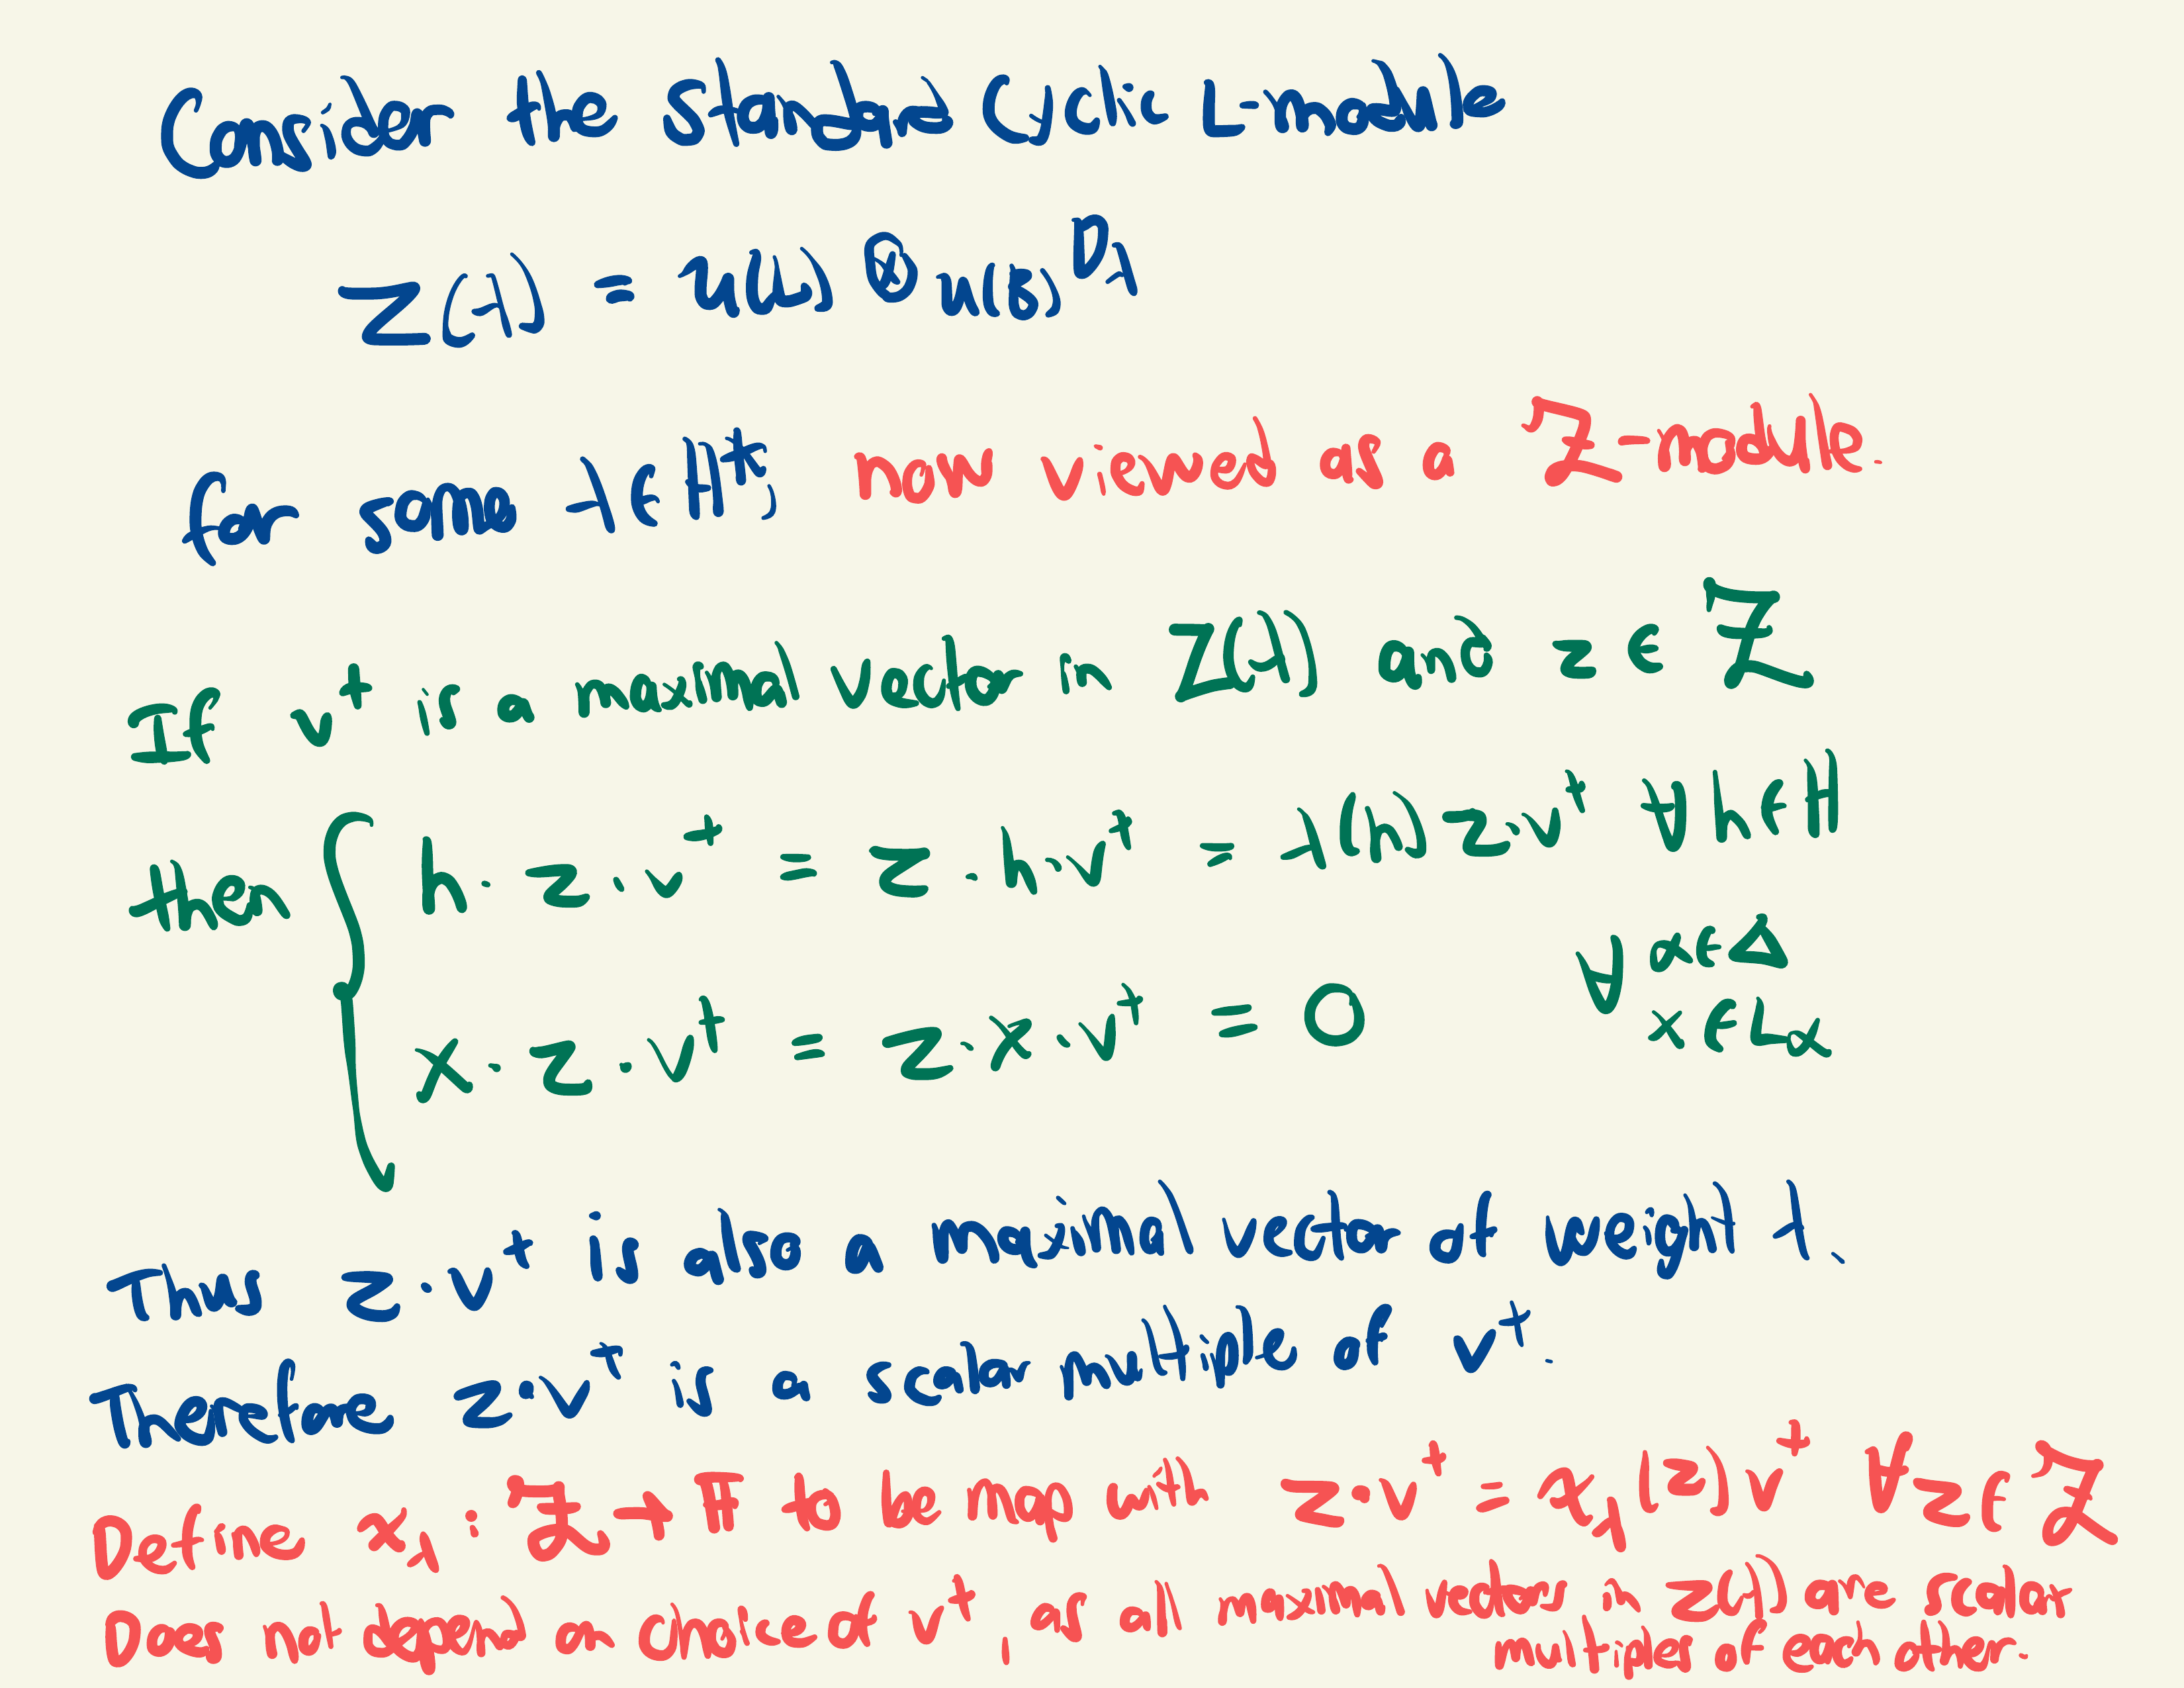 Consider the standard cyclic L-module
Z(λ) = U(L) ⊗_{U(B)} D_λ
for some λ ∈ H*, now viewed as a Z-module.
If v⁺ is a maximal vector in Z(λ) and z ∈ Z
then { h·z·v⁺ = z·h·v⁺ = λ(h) z·v⁺ ∀ h ∈ H
x·z·v⁺ = z·x·v⁺ = 0 ∀ α ∈ Δ
x ∈ L_α
Thus z·v⁺ is also a maximal vector of weight λ.
Therefore z·v⁺ is a scalar multiple of v⁺.
Define χ_λ : Z → F to be map with z·v⁺ = χ_λ(z) v⁺ ∀ z ∈ Z
Does not depend on choice of v⁺, as all maximal vectors in Z(λ) are scalar
multiples of each other.